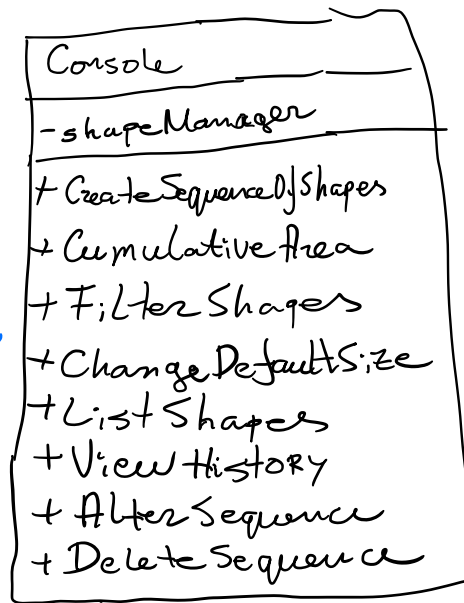 Console
-shapeManager
+ CreateSequenceOfShapes
+ CumulativeArea
+ FilterShapes
+ ChangeDefaultSize
+ListShapes
+ViewHistory
+ AlterSequence
+ DeleteSequence